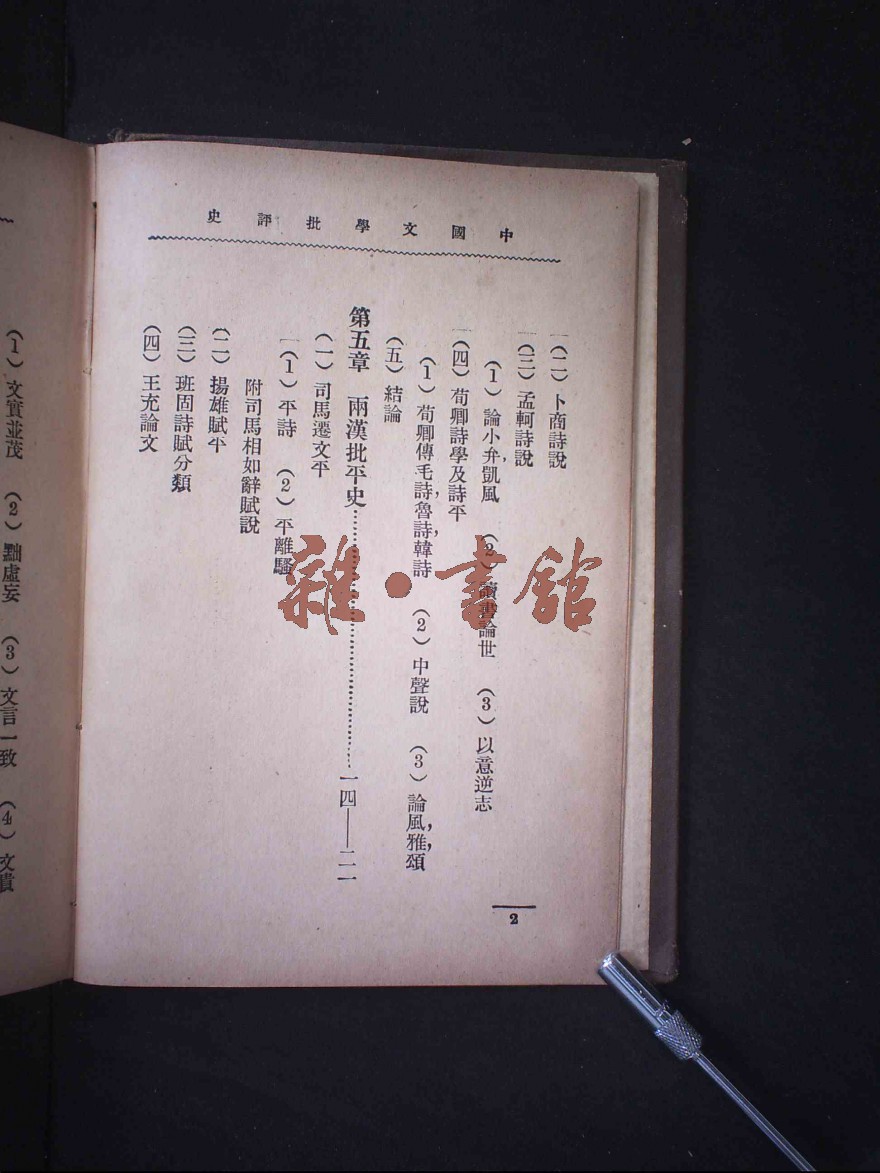 中國文學批評史
(二)卜商詩說
(三)孟軻詩說
(1)論小弁,凱風 (2)讀書論世 (3)以意逆志
(四)荀卿詩學及詩平
(1)荀卿傳毛詩,魯詩,韓詩 (2)中聲說 (3)論風,雅,頌
(五)結論
第五章 兩漢批平史……………一四——二一
(一)司馬遷文平
(1)平詩 (2)平離騷
附司馬相如辭賦說
(二)揚雄賦平
(三)班固詩賦分類
(四)王充論文
2
(1)文實並茂 (2)黜虛妄 (3)文言一致 (4)文貴
雜·書館